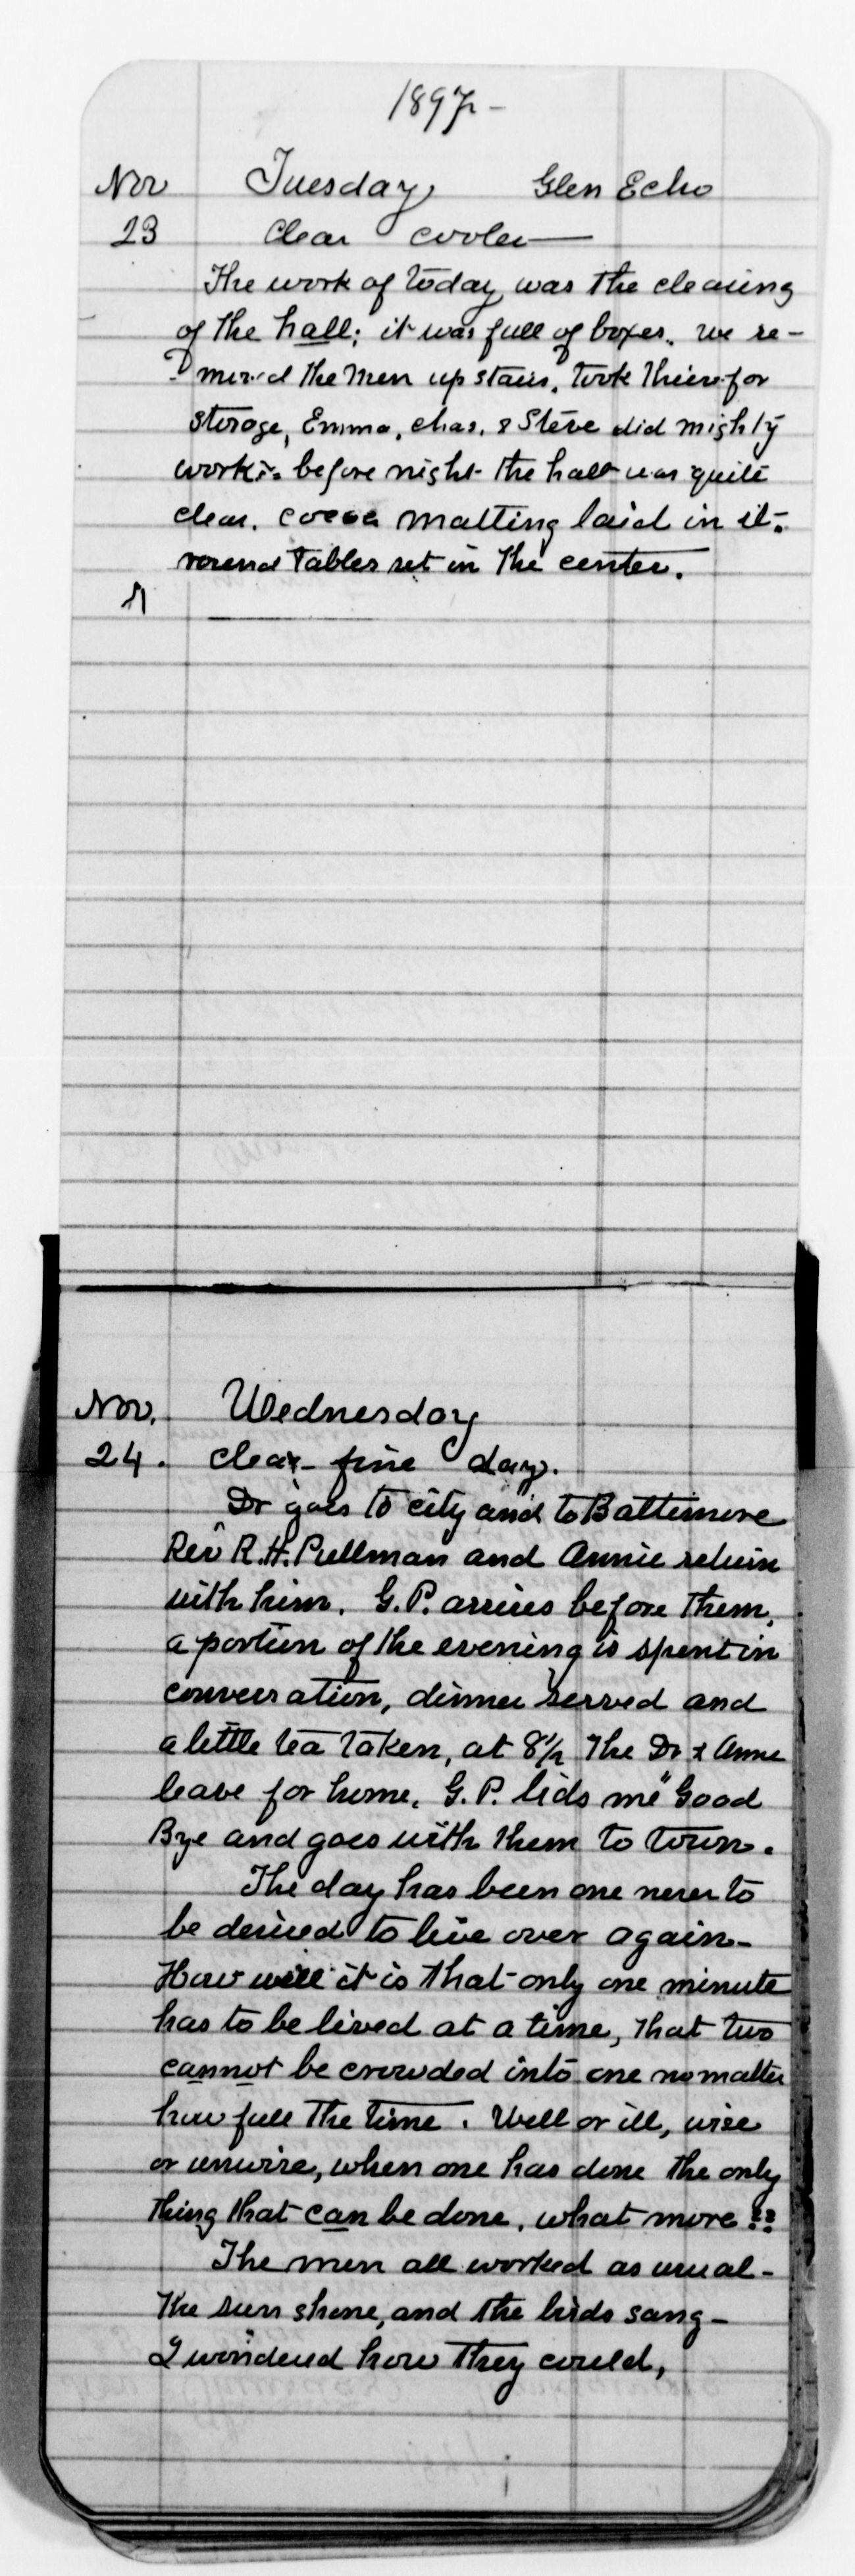 1897-
Nov Tuesday Glen Echo
23 Clear cooler—
The work of today was the clearing
of the hall; it was full of boxes. we re-
moved the men up stairs. took theirs for
storage, Emma, Chas. & Steve did mighty
work:- before night the hall was quite
clear. cocoa matting laid in it-
round tables set in the center.
Nov. Wednesday
24. clear- fine day.
Dr goes to city and to Baltimore
Rev R.H. Pullman and Annie return
with him. G.P. arrives before them,
a portion of the evening is spent in
conversation, dinner served and
a little tea taken, at 8 1/2 the Dr & Annie
leave for home, G.P. bids me "Good
Bye and goes with them to town.
The day has been one never to
be desired to live over again-
How well it is that only one minute
has to be lived at a time, that two
cannot be crowded into one no matter
how full the time. Well or ill, wise
or unwise, when one has done the only
thing that can be done, what more !!
The men all worked as usual-
the sun shone, and the birds sang-
I wondered how they could,